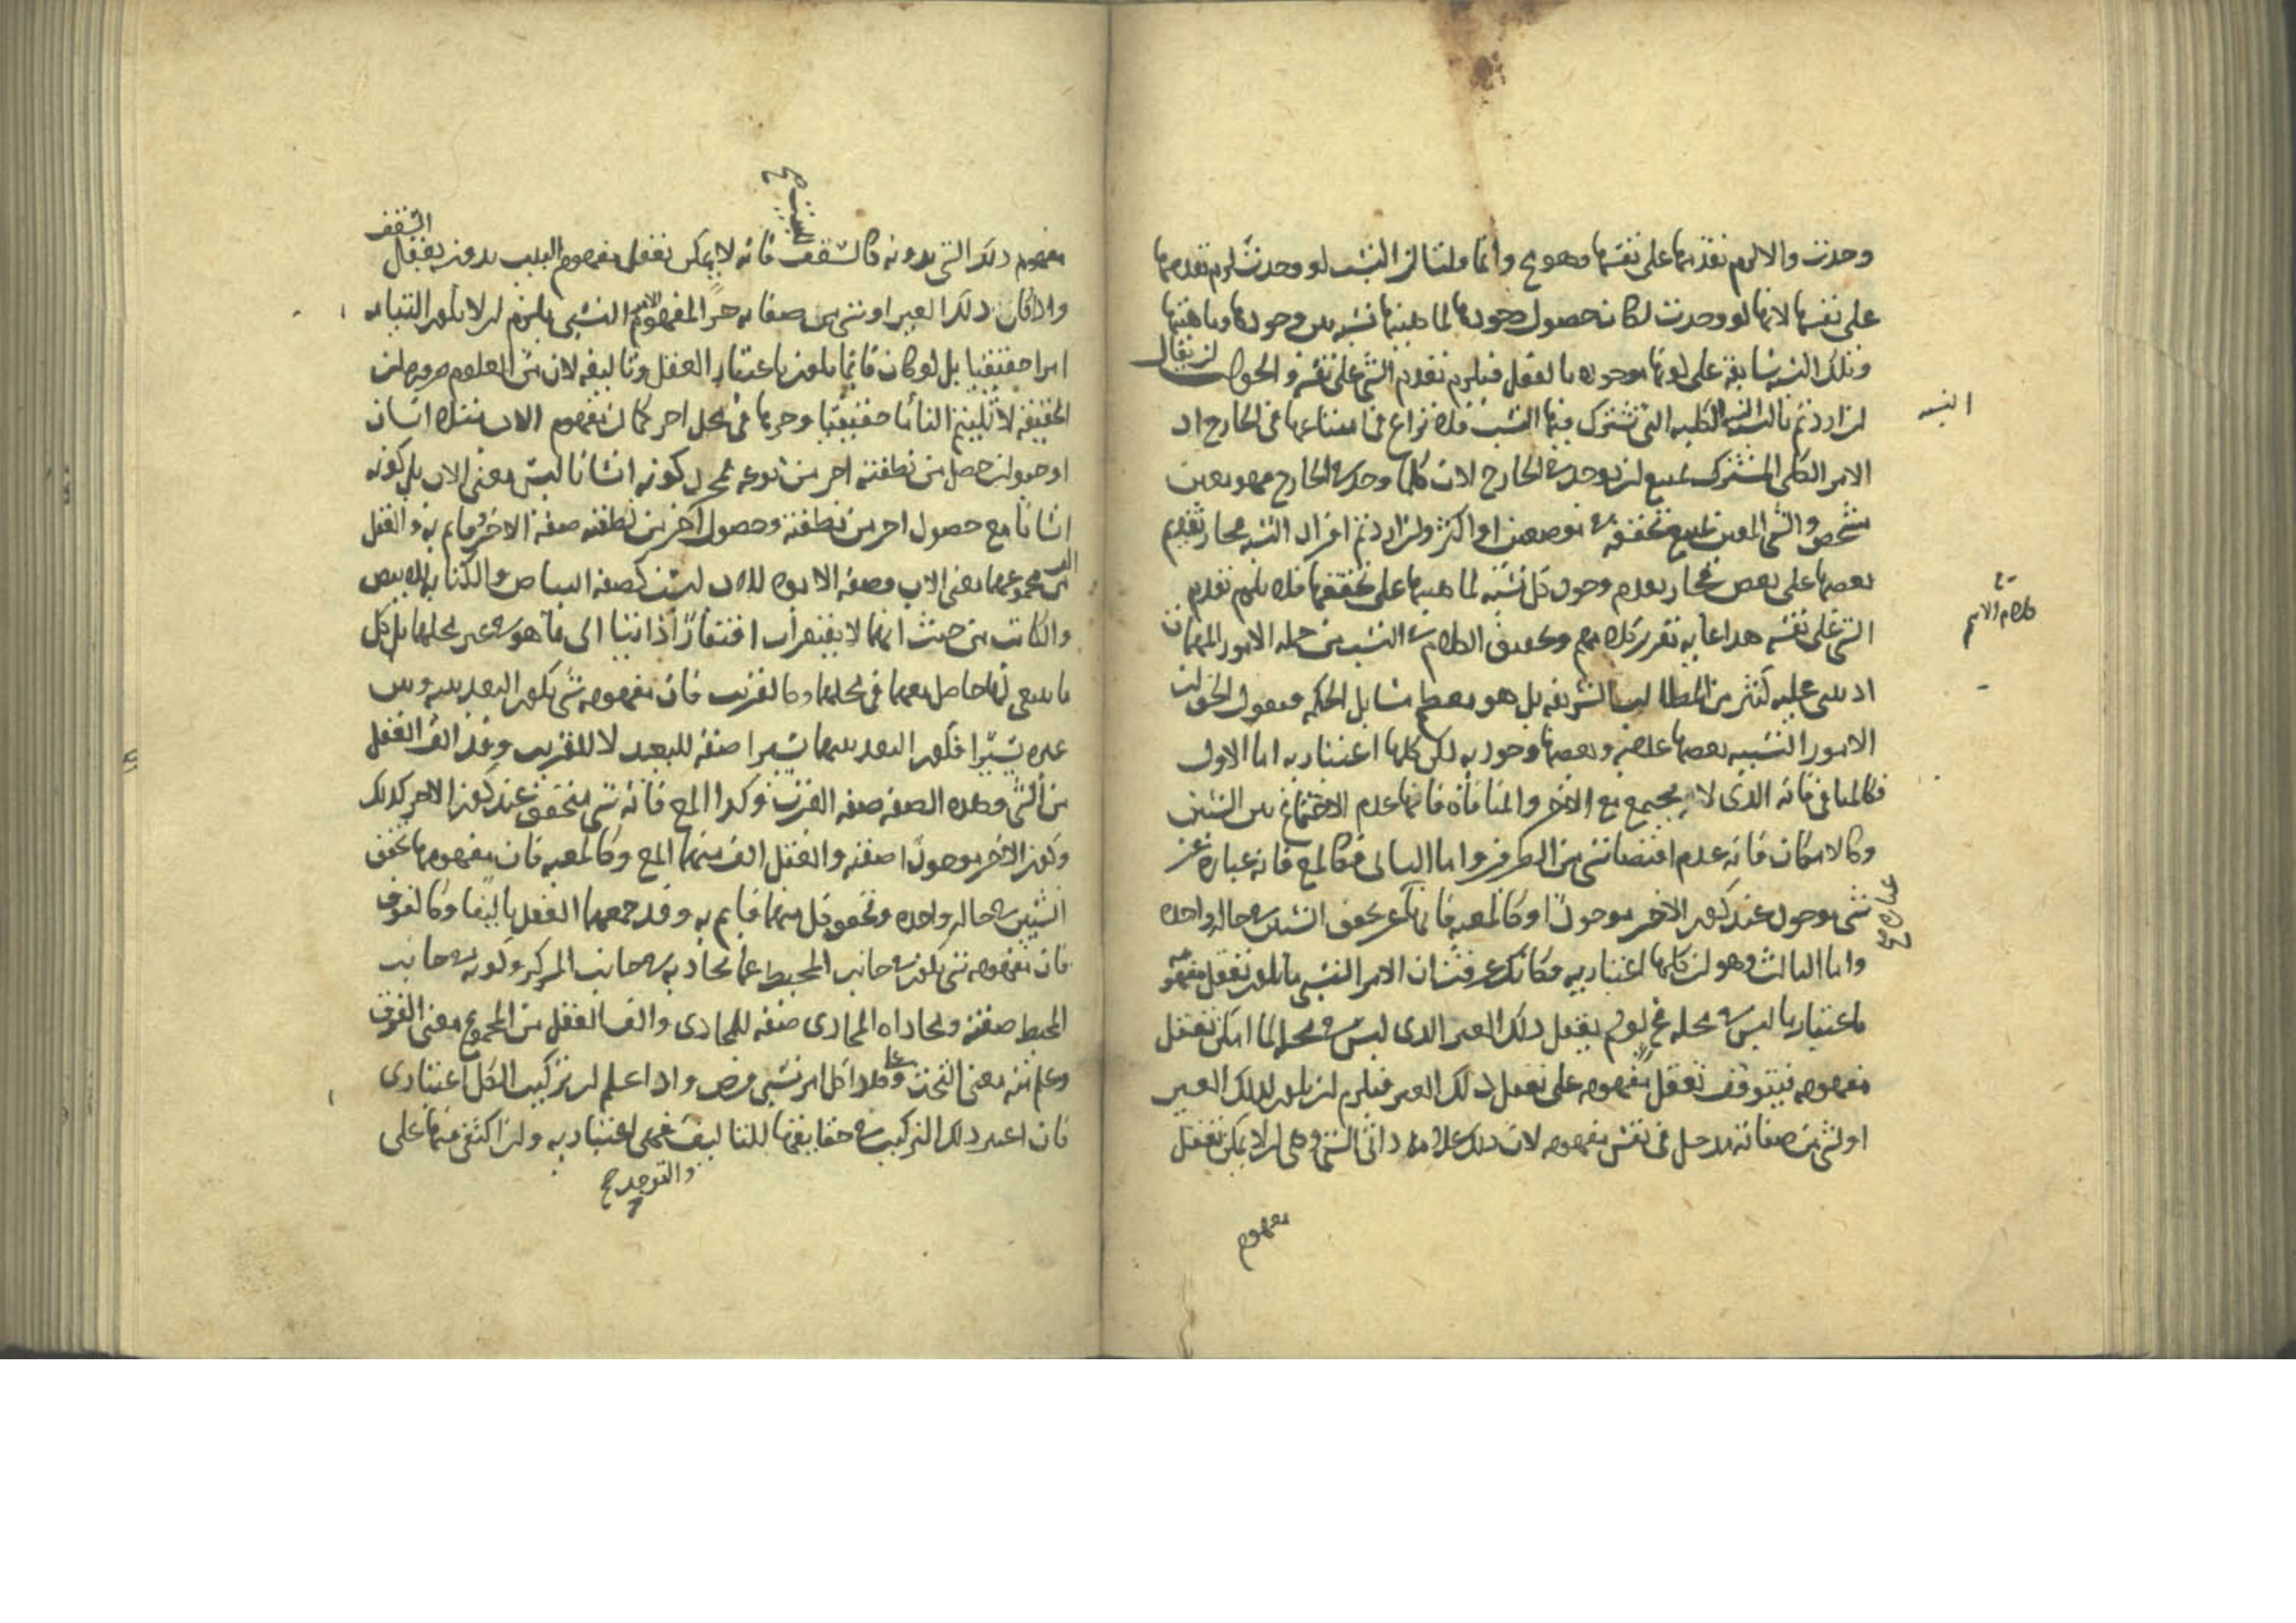 وجدت والا لزم تقدمها على نفسها وهو مح وانما قلنا ان النسب لو وجدت لزم تقدمها
على نفسها لانها لو وجدت لكان حصول وجودها لماهيتها نسبة بين وجودها وماهيتها
وتلك النسبة سابقة على كونها موجودة بالفعل فيلزم تقدم الشي على نفسه والجواب ان يقال
ان اردتم بالنسبة الكلية التي تشترك فيها النسب فلا نزاع في امتناعها في الخارج اذ
النسبه
الامر الكلي المشترك يمتنع ان يوجد في الخارج لان كلما وجد في الخارج فهو معين
مشخص والشي المعين يمتنع تحققه في موضعين او اكثر وان اردتم افراد النسبة فجاز تقديم
بعضها على بعض فجاز تقدم وجود كل نسبة لماهيتها على تحققها فلا يلزم تقدم
الشي على نفسه هذا غاية تقرير كلامهم وتحقيق الكلام في النسب من جملة الامور المهمات
كلام الامام
اذ يبتنى عليه كثير من المطالب الشريفة بل هو معظم مسايل الحكمة فنقول الحق ان
الامور النسبية بعضها عدمية وبعضها وجودية لكن كلها اعتبارية اما الاول
فكالمنافي فانه الذي لا يجتمع مع الاخر والمنافاة فانها عدم الاجتماع بين الشيئين
وكالامكان فانه عدم اقتضا شي من الطرفين واما الثاني فكالمع فانه عبارة عن
شي موجود عند كون الاخر موجودا وكالمعية فانها عبارة عن تحقق الشيئين في حالة واحدة
عبارة صح
واما الثالث وهو ان كلها اعتبارية فكانك عرفت ان الامر النسبي ما يكون تعقل مفهومه
باعتبار ما ليس في محله مح لو لم يعقل ذلك الغير الذي ليس في محله لما امكن تعقل
مفهومه فيتوقف تعقل مفهومه على تعقل ذلك الغير فيلزم ان يكون لذلك الغير
او لشي من صفاته مدخل في نفس مفهومه لان ذلك علامة ذاتي الشي وهي ان لا يمكن تعقل
مفهوم
مفهوم ذلك الشي بدونه كالسقف فانه لا يمكن تعقل مفهوم البيت بدون تعقل السقف
البيت صح
واذا كان ذلك الغير او شي من صفاته جزا لمفهوم الامر النسبي يلزم ان لا يكون النسبة
امرا حقيقيا بل لو كان فانما يكون باعتبار العقل وتاليفه لان من المعلوم ضرورة ان
الحقيقة لا تلتئم التياما حقيقيا وجزها في محل اخر كما ان مفهوم الاب مثلا انسان
او حيوان حصل من نطفته اخر من نوعه فمجرد كونه انسانا ليس معنى الاب بل كونه
انسانا مع حصول اخر من نطفته وحصول آخر من نطفته صفة الاخر قايم به والعقل
الف من مجموعهما معنى الاب وصفة الابوة للاب ليست كصفة البياض والكتابة للابيض
والكاتب من حيث انهما لا يفتقران افتقارا ذاتيا الى ما هو في غير محلهما بل كل
ما ينبغي لهما حاصل معهما في محلهما وكالقرب فان مفهومه شي يكون البعد بينه وبين
غيره يسيرا فكون البعد بينهما يسيرا صفة للبعد لا للقريب وقد الف العقل
من الشي وهذه الصفة صفة القرب وكذا المع فانه شي متحقق عند كون الاخر كذلك
وكون الاخر موجودا صفته والعقل الف منهما المع وكالمعية فان مفهومها تحقق
الشيئين في حالة واحدة وتحقق كل منهما قايم به وقد جمعهما العقل تاليفا وكالفوق
فان مفهومه شي يكون في جانب المحيط عما يحاذيه في جانب المركز وكونه في جانب
المحيط صفته ومحاذاة المحاذي صفة للمحاذي والف العقل من المجموع معنى الفوق
وعلم منه معنى التحت وعلى هذا كل امر نسبي فرض واذا علم ان تركيب الكل اعتباري
فان اعتبر ذلك التركيب في حقايقها للتاليف فهي اعتبارية وان اكتفى فيها على
والتوحيد صح